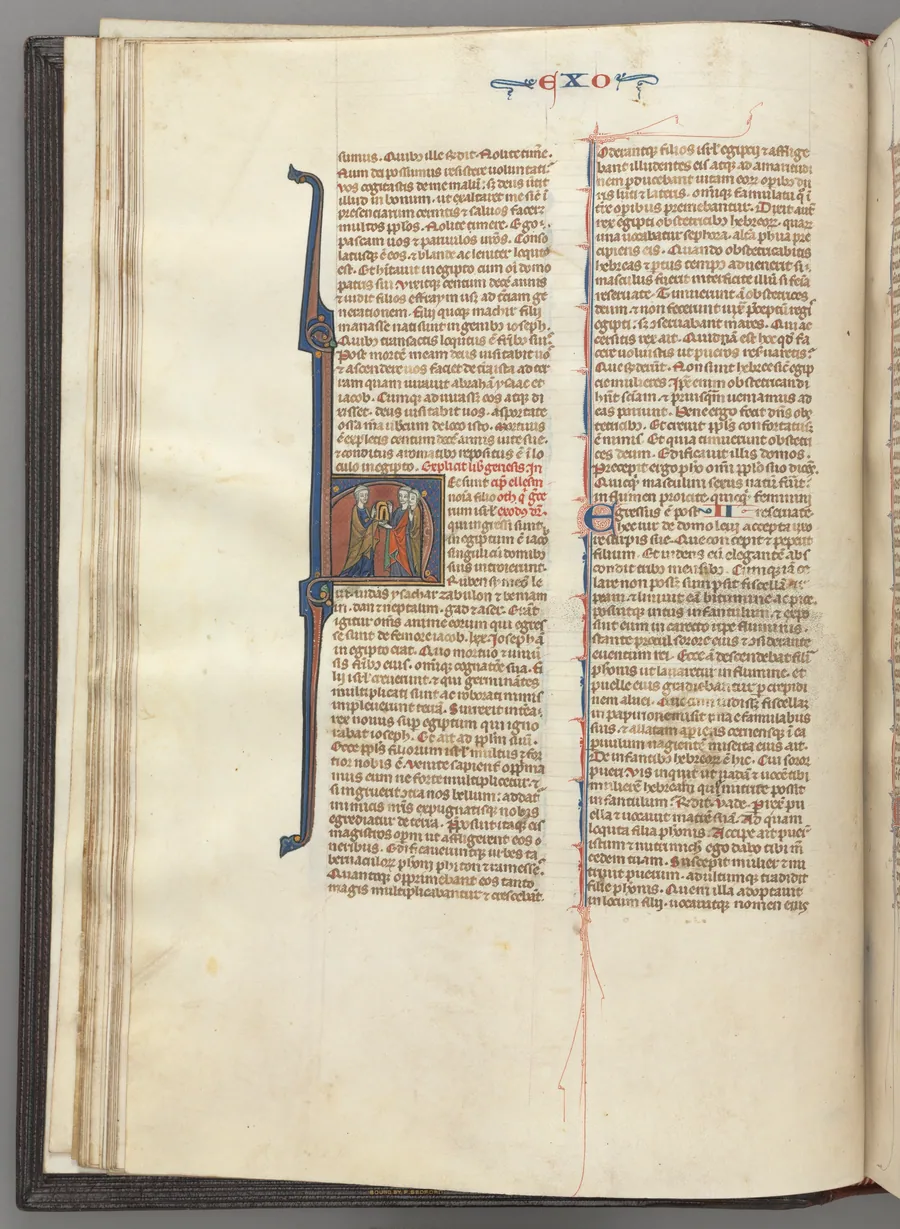 EXO
sumus. Quibus ille respondit. Nolite time
Num dei possumus resistere voluntati.
vos cogitastis de me malum: sed deus vertit
illud in bonum. ut exaltaret me sicut in
presenciarum cernitis et salvos faceret
multos populos. Nolite timere. Ego
pascam vos et parvulos vestros. Conso
latusque est eos. et blande ac leniter locutus
est. Et habitavit in egipto cum omni domo
patris sui vixitque centum decem annis
et vidit filios effraym usque ad terciam ge
nerationem. Filii quoque machir filii
manasse nati sunt in genibus ioseph.
Quibus transactis locutus est fratribus suis
Post mortem meam deus visitabit vos
et ascendere vos faciet de terra ista ad ter
ram quam iuravit abraham ysaac et
iacob. Cumque adiurasset eos atque di
xisset. deus visitabit vos. asportate
ossa mea vobiscum de loco isto. Mortuus
est expletis centum decem annis vite sue.
et conditus aromatibus repositus est in lo
culo in egipto. Explicit liber genesis. In
Ec sunt cipit ellesm
nomina filiorum oth quod grece
israel exodus dicitur.
qui ingressi sunt
in egiptum cum iacob
singuli cum domibus
suis introierunt.
Ruben symeon le
vi iudas ysachar zabulon et beniam
in. dan et neptalim. gad et aser. Erant
igitur omnes anime eorum qui egres
se sunt de femore iacob. lxx. Ioseph autem
in egipto erat. Quo mortuo et univer
sis fratribus eius. omnique cognatione sua. fi
lii israel creverunt. et quasi germinantes
multiplicati sunt ac roborati nimis
impleverunt terram. Surrexit interea
rex novus super egiptum qui igno
rabat ioseph. Et ait ad populum suum.
Ecce populus filiorum israel multus et for
tior nobis est. venite sapienter opprima
mus eum ne forte multiplicetur. et
si ingruerit contra nos bellum: addatur
inimicis nostris expugnatisque nobis
egrediatur de terra. Preposuit itaque eis
magistros operum ut affligerent eos
oneribus. Edificaveruntque urbes ta
bernaculorum pharaoni phiton et ramesses.
Quantoque opprimebant eos tanto
magis multiplicabantur et crescebant.
Oderantque filios israel egipcii et afflige
bant illudentes eis atque ad amaritudi
nem perducebant vitam eorum operibus du
ris luti et lateris. omnique famulatu quo in
terre operibus premebantur. Dixit autem
rex egipti obstetricibus hebreorum. quarum
una vocabatur sephora. altera phua pre
cipiens eis. Quando obstetricabitis
hebreas et partus tempus advenerit si
masculus fuerit interficite illum si femina
reservate. Timuerunt autem obstetrices
deum. et non fecerunt iuxta preceptum regis
egipti: sed conservabant mares. Quibus ac
cersitis rex ait. Quidnam est hoc quod fa
cere voluistis ut pueros reservaretis?
Que responderunt. Non sunt hebree sicut egip
cie mulieres. Ipse enim obstetricandi
habent scientiam. et priusquam veniamus ad
eas pariunt. Bene ergo fecit deus obste
tricibus. Et crevit populus confortatusque
est nimis. Et quia timuerunt obstetri
ces deum. Edificavit illis domos.
Precepit ergo pharao omni populo suo dicens.
Quicquid masculini sexus natum fuerit:
in flumen proicite. quicquid feminini
Egressus est post II reservate.
hec vir de domo levi accepta uxo
re stirpis sue. Que concepit et peperit
filium. Et videns eum elegantem abs
condit tribus mensibus. Cumque iam ce
lare non posset sumpsit fiscellam
peam. et linivit eam bitumine ac pice.
posuitque intus infantulum. et expo
suit eum in carecto ripe fluminis.
stante procul sorore eius et considerante
eventum rei. Ecce autem descendebat filia
pharaonis ut lavaretur in flumine. et
puelle eius gradiebantur per crepidi
nem alvei. Que cum vidisset fiscellam
in papirione misit unam e famulabus
suis. et allatam aperiens cernensque in ea
parvulum vagientem miserta eius ait.
De infantibus hebreorum est hic. Cui soror
pueri. Vis inquit ut vadam et vocem tibi
mulierem hebream que nutrire possit
infantulum? Respondit. Vade. Perrexit pu
ella et vocavit matrem suam. Ad quam
locuta filia pharaonis. Accipe ait puerum
istum et nutri michi. ego dabo tibi mer
cedem tuam. Suscepit mulier et nu
trivit puerum. adultumque tradidit
filie pharaonis. Quem illa adoptavit
in locum filii. vocavitque nomen eius
BOUND BY F. BEDFORD